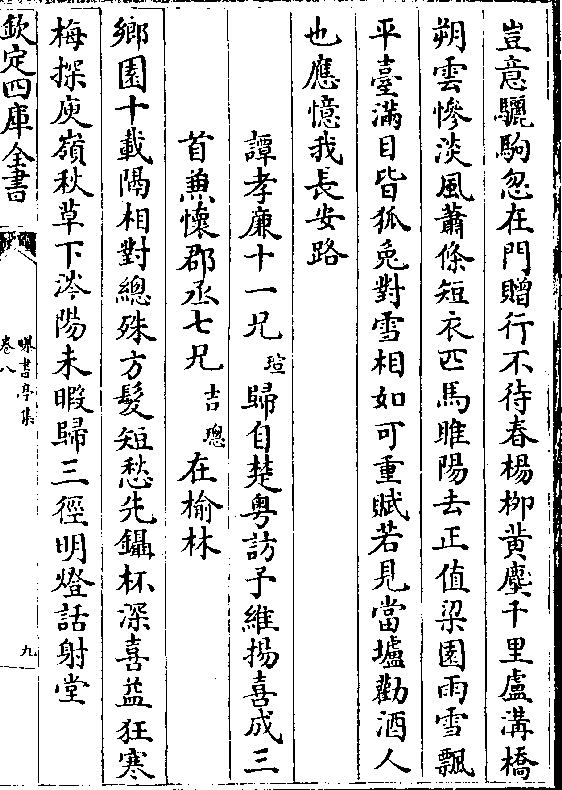 豈意驪駒忽在門贈行不待春楊柳黄塵千里盧溝橋
朔雲慘淡風蕭條短衣匹馬睢陽去正值梁園雨雪飄
平臺滿目皆狐兔對雪相如可重賦若見當壚勸酒人
也應憶我長安路
譚孝廉十一兄瑄歸自楚粤訪予維揚喜成三
首兼懷郡丞七兄吉璁在榆林
鄉園十載隔相對總殊方髮短愁先鑷杯深喜益狂寒
梅探庾嶺秋草下涔陽未暇歸三徑明燈話射堂
欽定四庫全書
曝書亭集
卷八
九